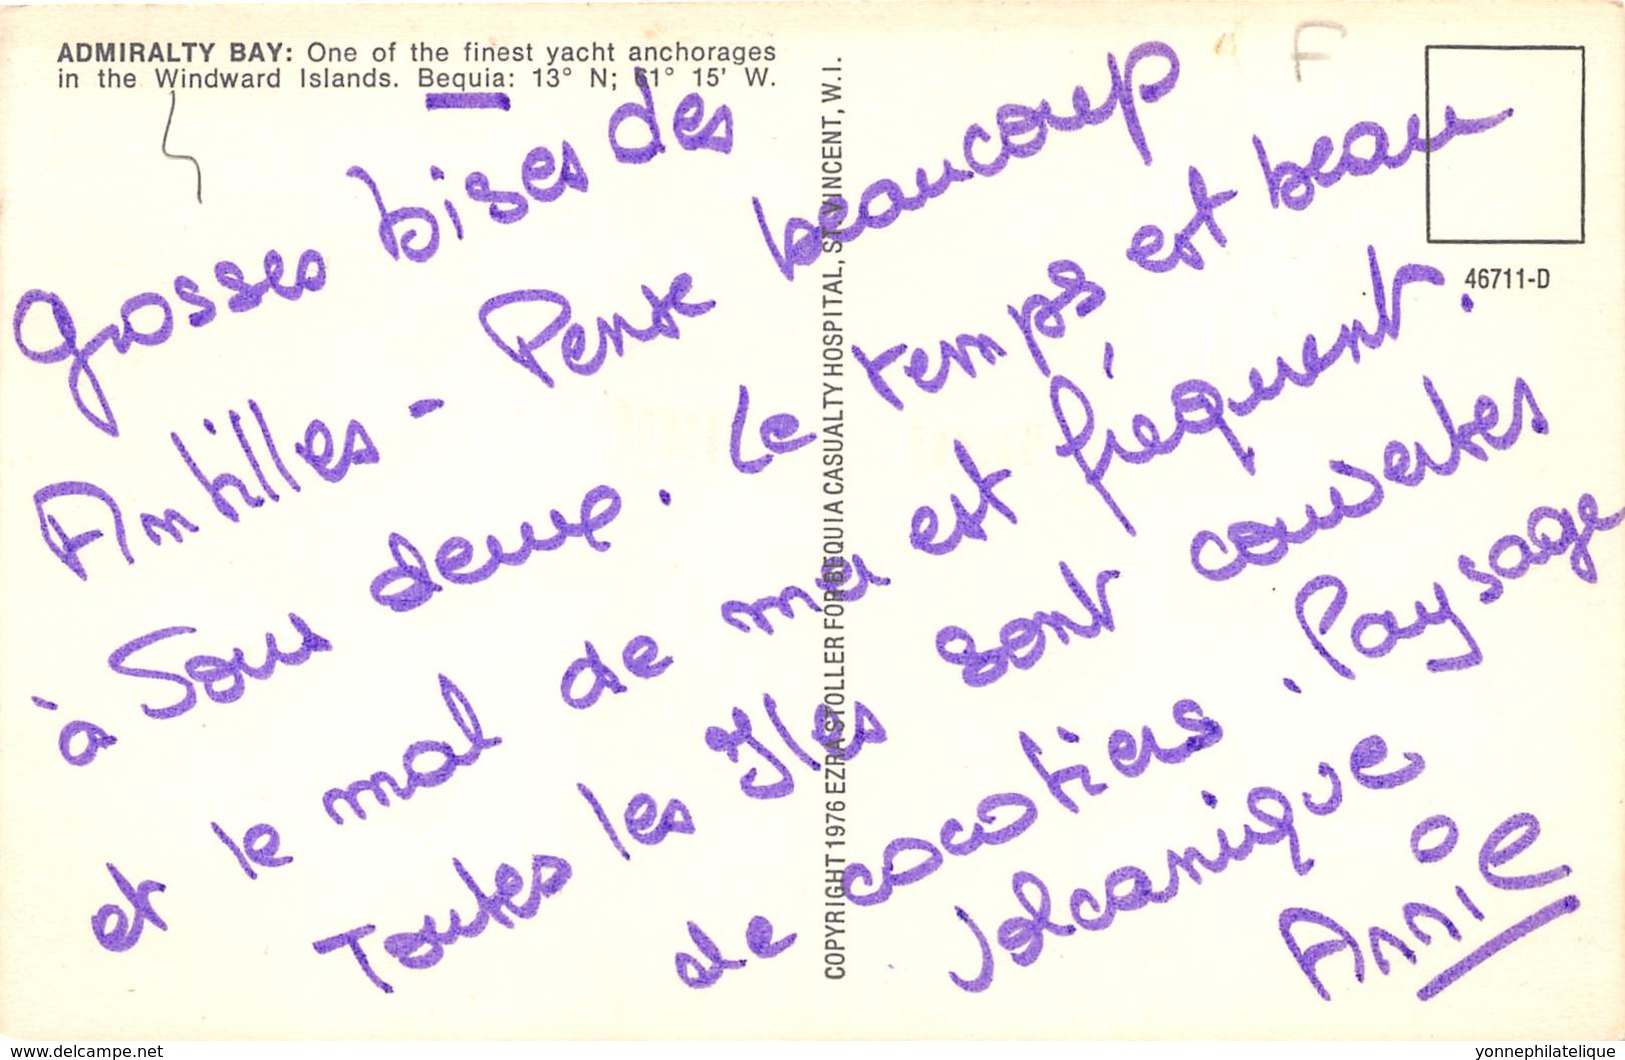 ADMIRALTY BAY: One of the finest yacht anchorages
in the Windward Islands. Bequia: 13° N; 61° 15' W.
F
46711-D
COPYRIGHT 1976 EZRA STOLLER FOR BEQUIA CASUALTY HOSPITAL, ST. VINCENT, W.I.
Grosses bises des
Antilles - Pense beaucoup
à Vous deux. Le temps est beau
et le mal de mer est fréquent.
Toutes les Iles sont couvertes
de cocotiers. Paysage
volcanique
Annie
www.delcampe.net
yonnephilatelique